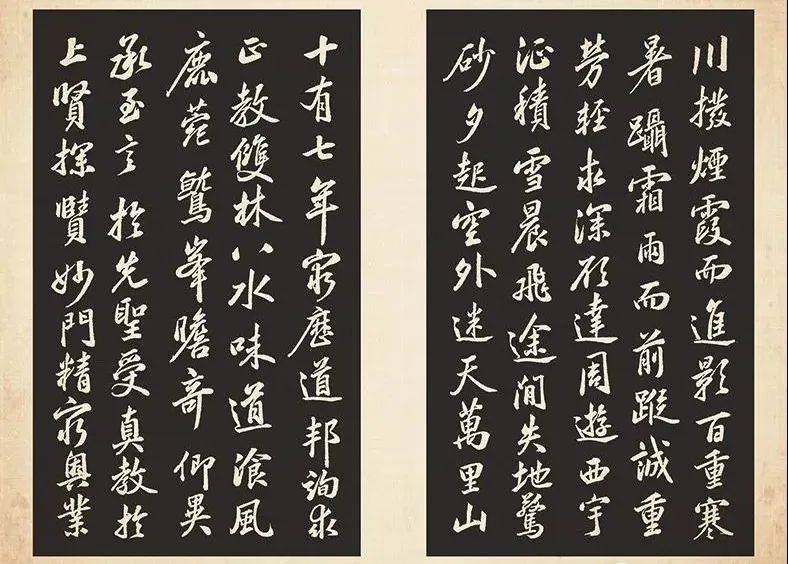 川撥煙霞而進影百重寒
暑躡霜雨而前蹤誠重
勞輕求深願達周遊西宇
征積雪晨飛途閒失地驚
砂夕起空外迷天萬里山
十有七年窮歷道邦詢求
正教雙林八水味道飡風
鹿菀鷲峯瞻奇仰異
承至言於先聖受真教於
上賢探賾妙門精窮奧業